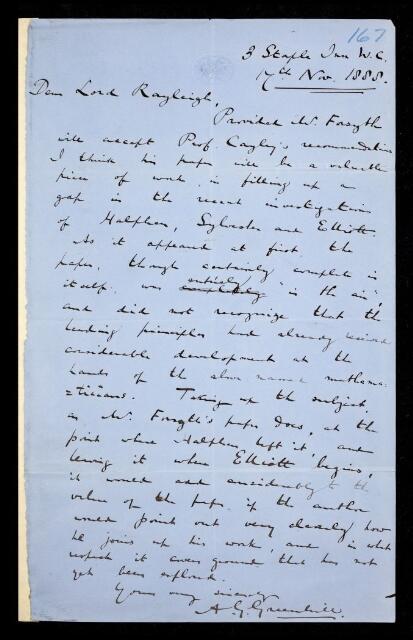 167
3 Staple Inn W.C.
17th Nov. 1888.
Dear Lord Rayleigh,
Provided Mr. Forsyth
will accept Prof. Cayley's recommendations
I think his paper will be a valuable
piece of work, in filling up a
gap in the recent investigations
of Halphen, Sylvester and Elliott.
As it appeared at first the
paper, though certainly complete in
itself, was completely entirely "in the air",
and did not recognize that the
leading principles had already received
considerable development at the
hands of the above named mathema-
=ticians. Taking up the subject,
as Mr. Forsyth's paper does, at the
point where Halphen left it, and
leaving it where Elliott begins,
it would add considerably to the
value of the paper if the author
would point out very clearly how
he joins up his work, and in what
respect it covers ground that has not
yet been explored.
Yours very sincerely
A. G. Greenhill.